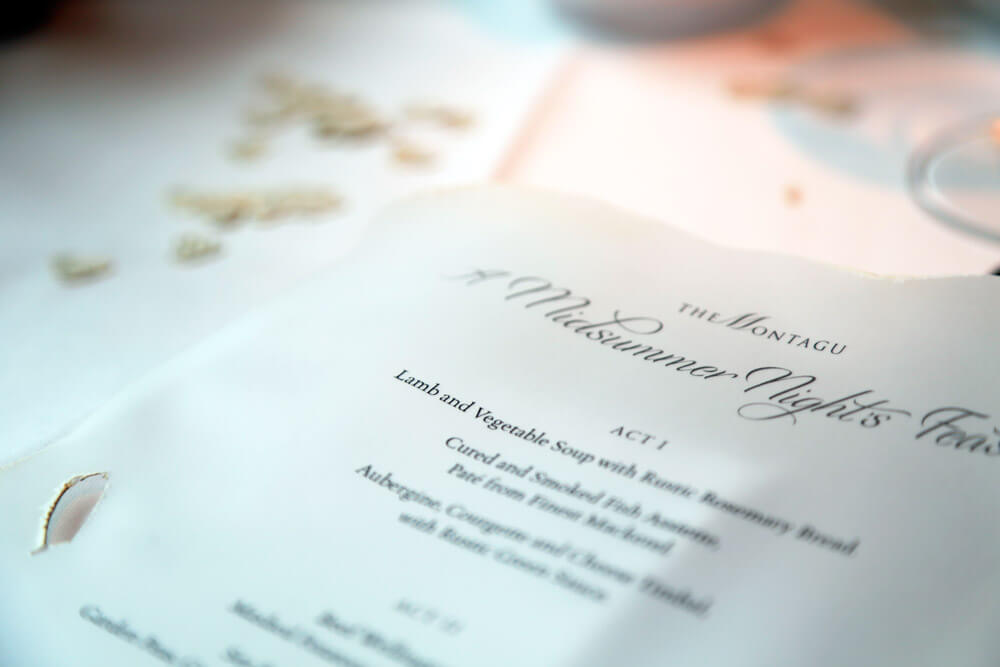 THE MONTAGU
A Midsummer Night's Feas
ACT I
Lamb and Vegetable Soup with Rustic Rosemary Bread
Cured and Smoked Fish Assiette,
Paté from Finest Mackerel
Aubergine, Courgette and Cheese Timbal
with Rustic Green Sauce
ACT II
Beef Wellington
Garden Peas,